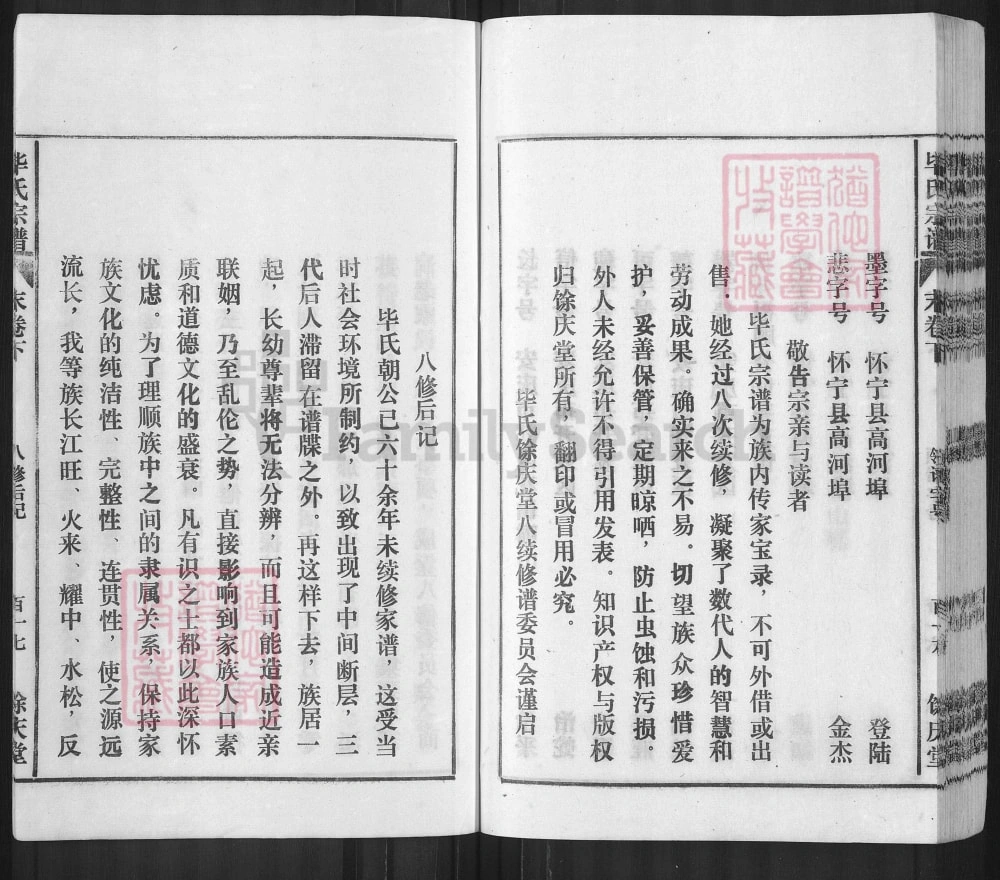 毕氏宗谱
末卷下
馀庆堂
墨字号 怀宁县高河埠 登陆
悲字号 怀宁县高河埠 金杰
敬告宗亲与读者
毕氏宗谱为族内传家宝录，不可外借或出
售．她经过八次续修，凝聚了数代人的智慧和
劳动成果。确实来之不易。切望族众珍惜爱
护，妥善保管，定期晾晒，防止虫蚀和污损。
外人未经允许不得引用发表。知识产权与版权
归馀庆堂所有，翻印或冒用必究。
毕氏馀庆堂八续修谱委员会谨启
八修后记
毕氏朝公已六十余年未续修家谱，这受当
时社会环境所制约，以致出现了中间断层，三
代后人滞留在谱牒之外。再这样下去，族居一
起，长幼尊辈将无法分辨，而且可能造成近亲
联姻，乃至乱伦之势，直接影响到家族人口素
质和道德文化的盛衰。凡有识之士都以此深怀
忧虑。为了理顺族中之间的隶属关系，保持家
族文化的纯洁性、完整性、连贯性，使之源远
流长，我等族长江旺、火来、耀中、水松，反
毕氏宗谱
末卷下
八修后记
百十七
馀庆堂
FamilySearch